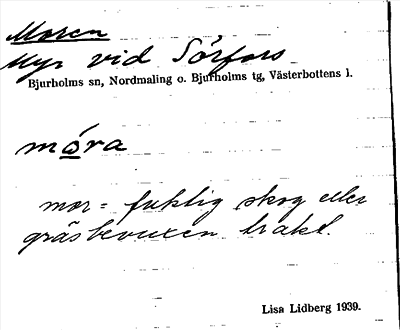 Moren
Myr vid Sörfors
Bjurholms sn, Nordmaling o. Bjurholms tg, Västerbottens l.
móra
mor = fuktig skog eller
gräsbevuxen trakt.
Lisa Lidberg 1939.